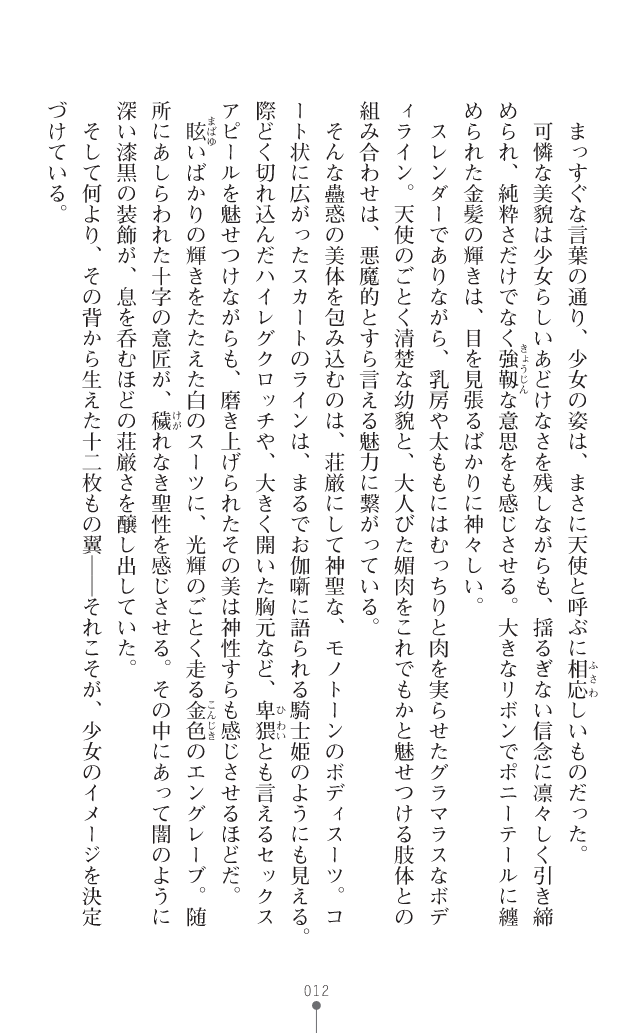 まっすぐな言葉の通り、少女の姿は、まさに天使と呼ぶに相応しいものだった。
可憐な美貌は少女らしいあどけなさを残しながらも、揺るぎない信念に凛々しく引き締
められ、純粋さだけでなく強靱な意思をも感じさせる。大きなリボンでポニーテールに纏
められた金髪の輝きは、目を見張るばかりに神々しい。
スレンダーでありながら、乳房や太ももにはむっちりと肉を実らせたグラマラスなボデ
ィライン。天使のごとく清楚な幼貌と、大人びた媚肉をこれでもかと魅せつける肢体との
組み合わせは、悪魔的とすら言える魅力に繋がっている。
そんな蠱惑の美体を包み込むのは、荘厳にして神聖な、モノトーンのボディスーツ。コ
ート状に広がったスカートのラインは、まるでお伽噺に語られる騎士姫のようにも見える。
際どく切れ込んだハイレグクロッチや、大きく開いた胸元など、卑猥とも言えるセックス
アピールを魅せつけながらも、磨き上げられたその美は神性すらも感じさせるほどだ。
眩いばかりの輝きをたたえた白のスーツに、光輝のごとく走る金色のエングレーブ。随
所にあしらわれた十字の意匠が、穢れなき聖性を感じさせる。その中にあって闇のように
深い漆黒の装飾が、息を呑むほどの荘厳さを醸し出していた。
そして何より、その背から生えた十二枚もの翼――それこそが、少女のイメージを決定
づけている。
012